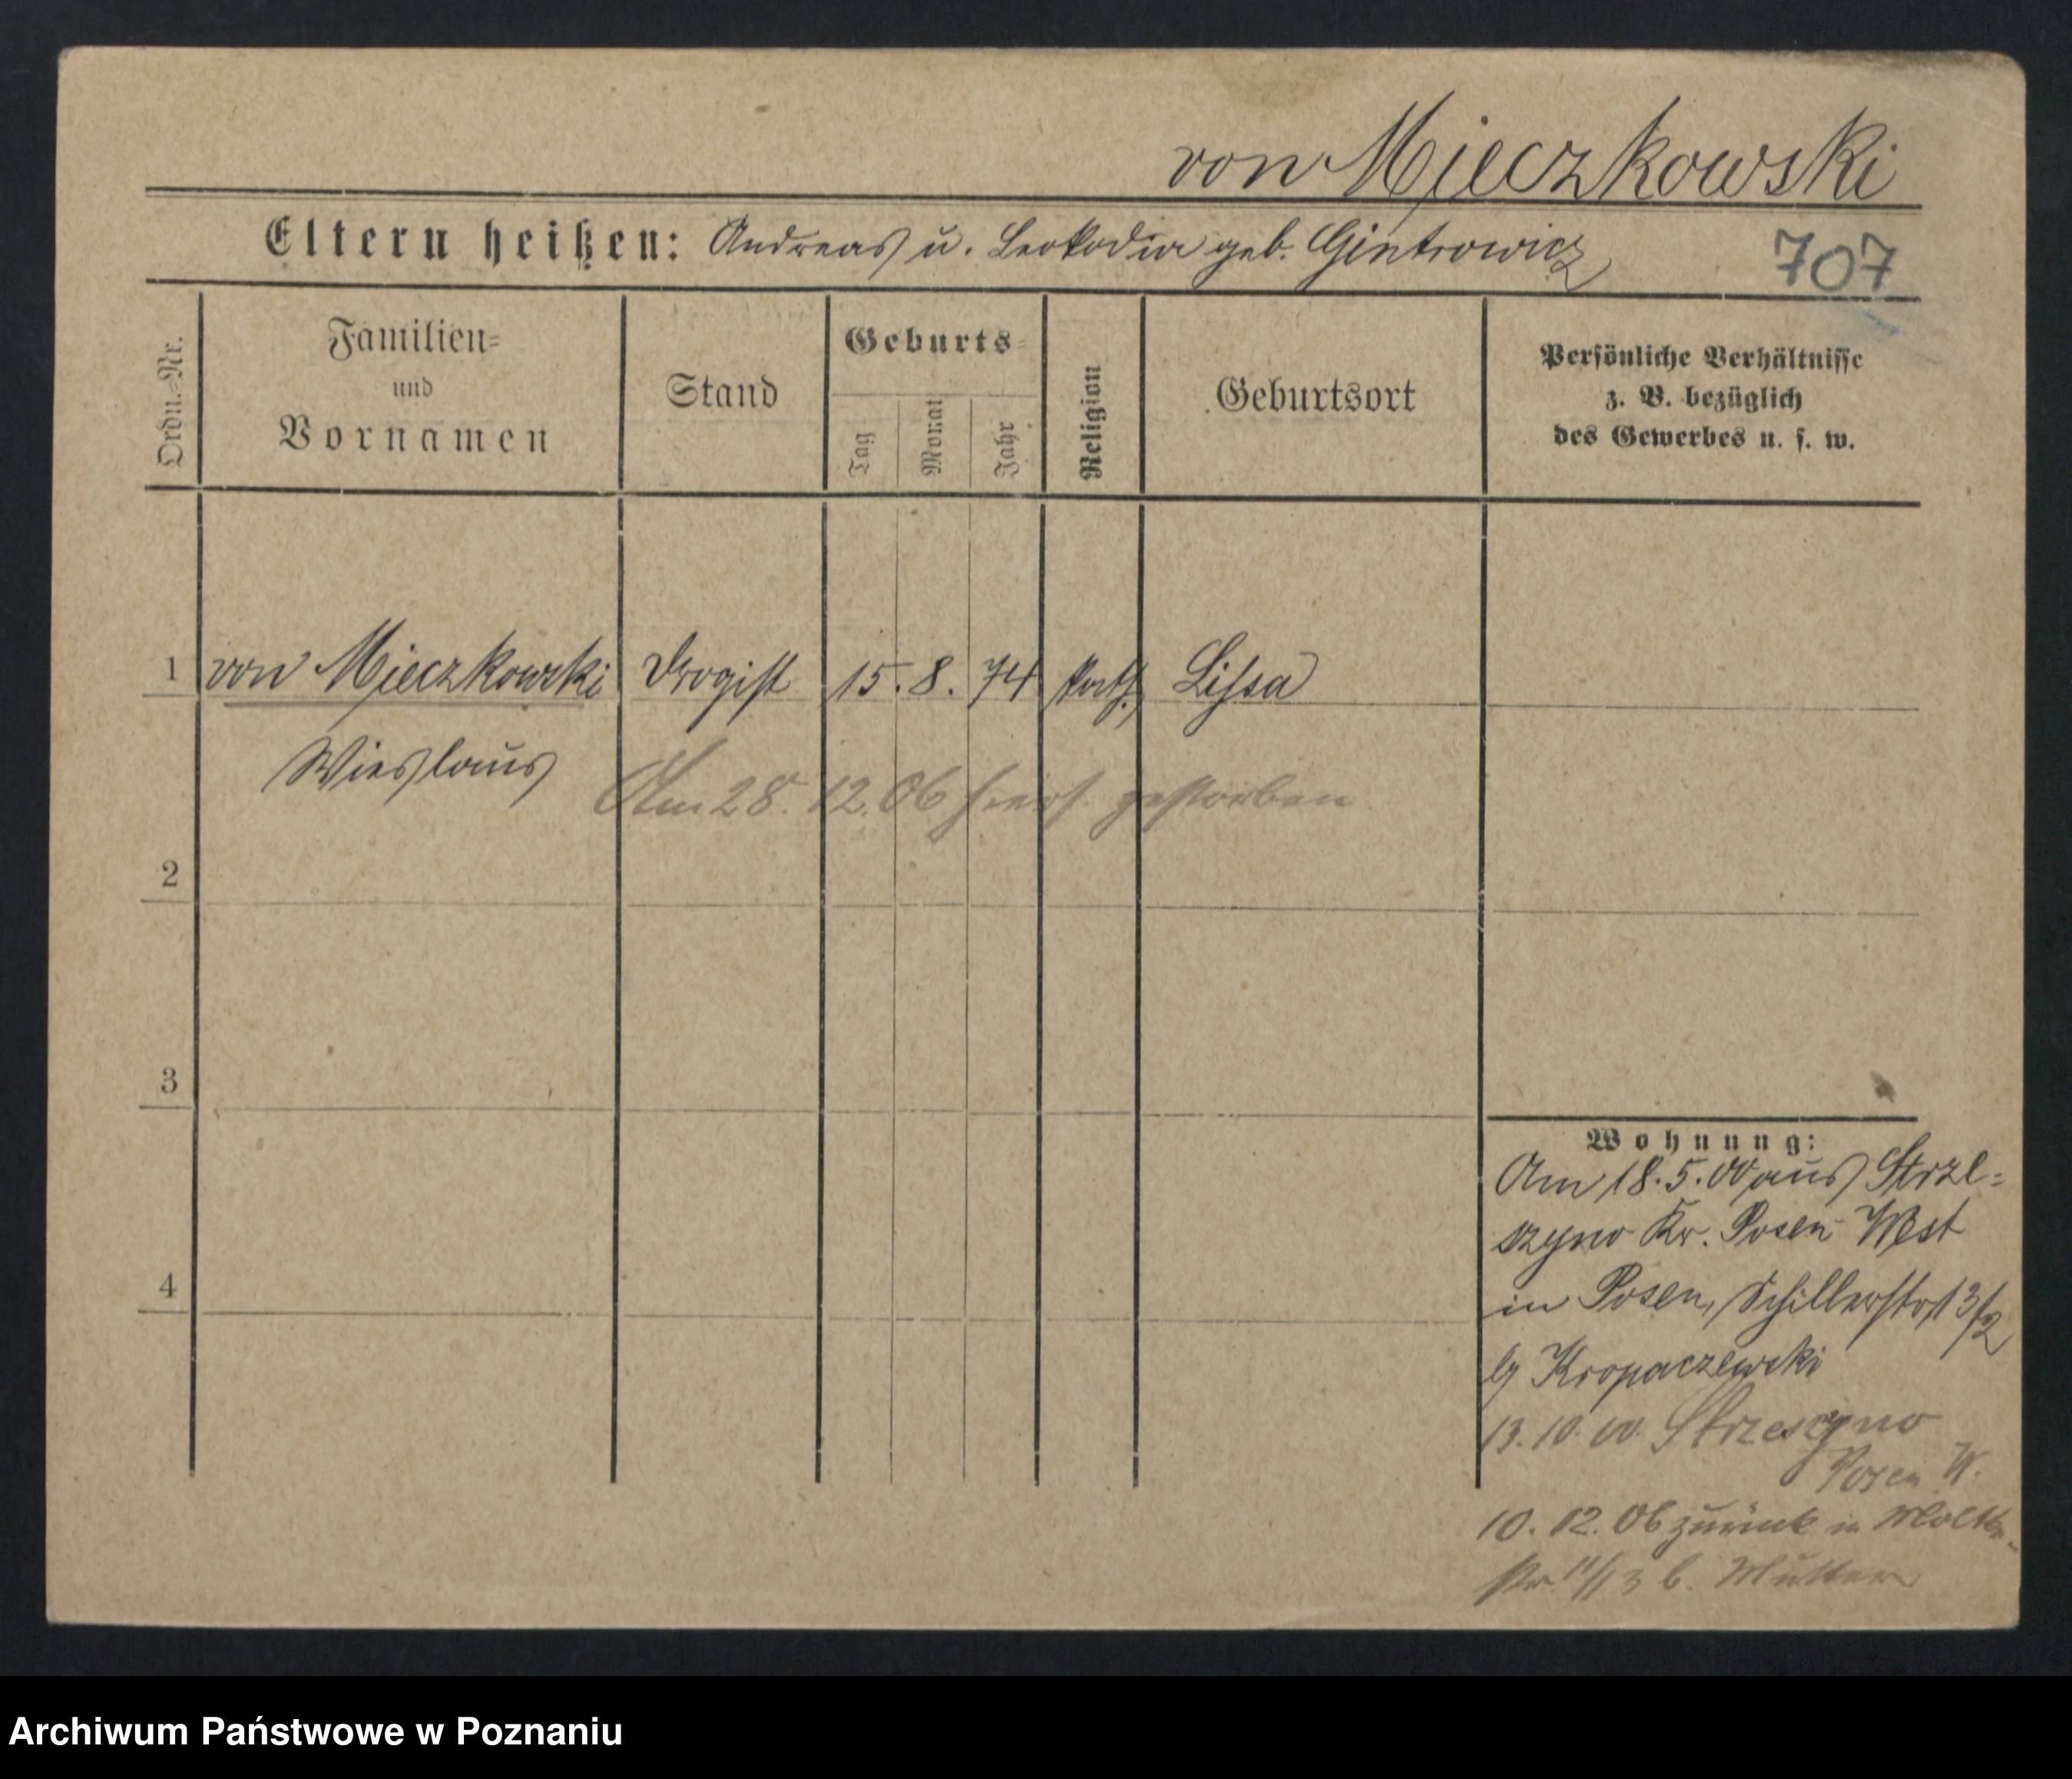 von Mieczkowski
Eltern heißen: Andreas u. Leokadia geb. Gintrowicz
707
Ordn.-Nr.
Familien=
und
Vornamen
Stand
Geburts=
Tag
Monat
Jahr
Religion
Geburtsort
Persönliche Verhältnisse
z. B. bezüglich
des Gewerbes u. s. w.
1 von Mieczkowski Drogist 15. 8. 74 kath. Lissa
Wieslaus
Am 28. 12. 06 hiers. gestorben.
2
3
4
Wohnung:
Am 18. 5. 00 aus Strze=
szyno Kr. Posen West
in Posen, Schillerstr.
Kropaczewski
13. 10. 00 Strzeszyno
Posen W.
10. 12. 06 zurück in Moltke-
str. 11/3 b. Mutter
Archiwum Państwowe w Poznaniu